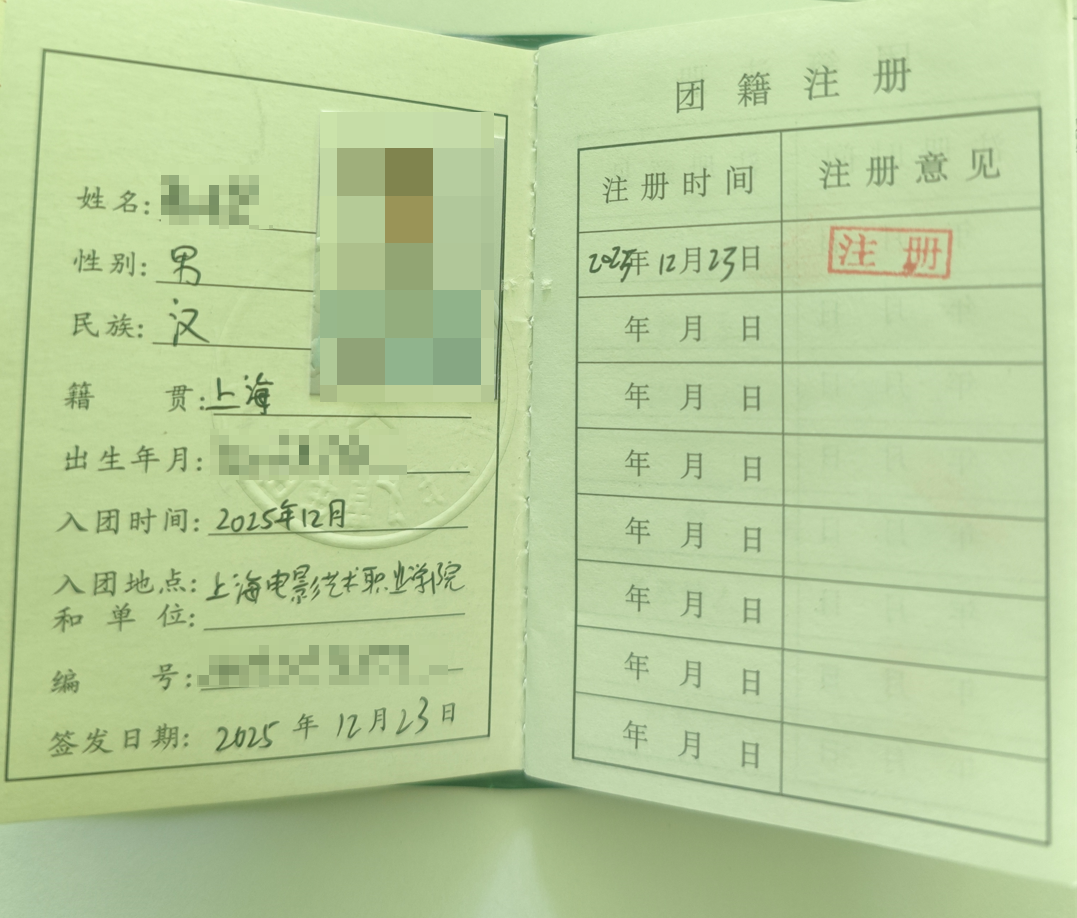 姓名:
性别: 男
民族: 汉
籍贯: 上海
出生年月:
入团时间: 2025年12月
入团地点: 上海电影艺术职业学院
和单位:
编号:
签发日期: 2025年12月23日
团籍注册
注册时间 注册意见
2025年12月23日 注册
年月日
年月日
年月日
年月日
年月日
年月日
年月日